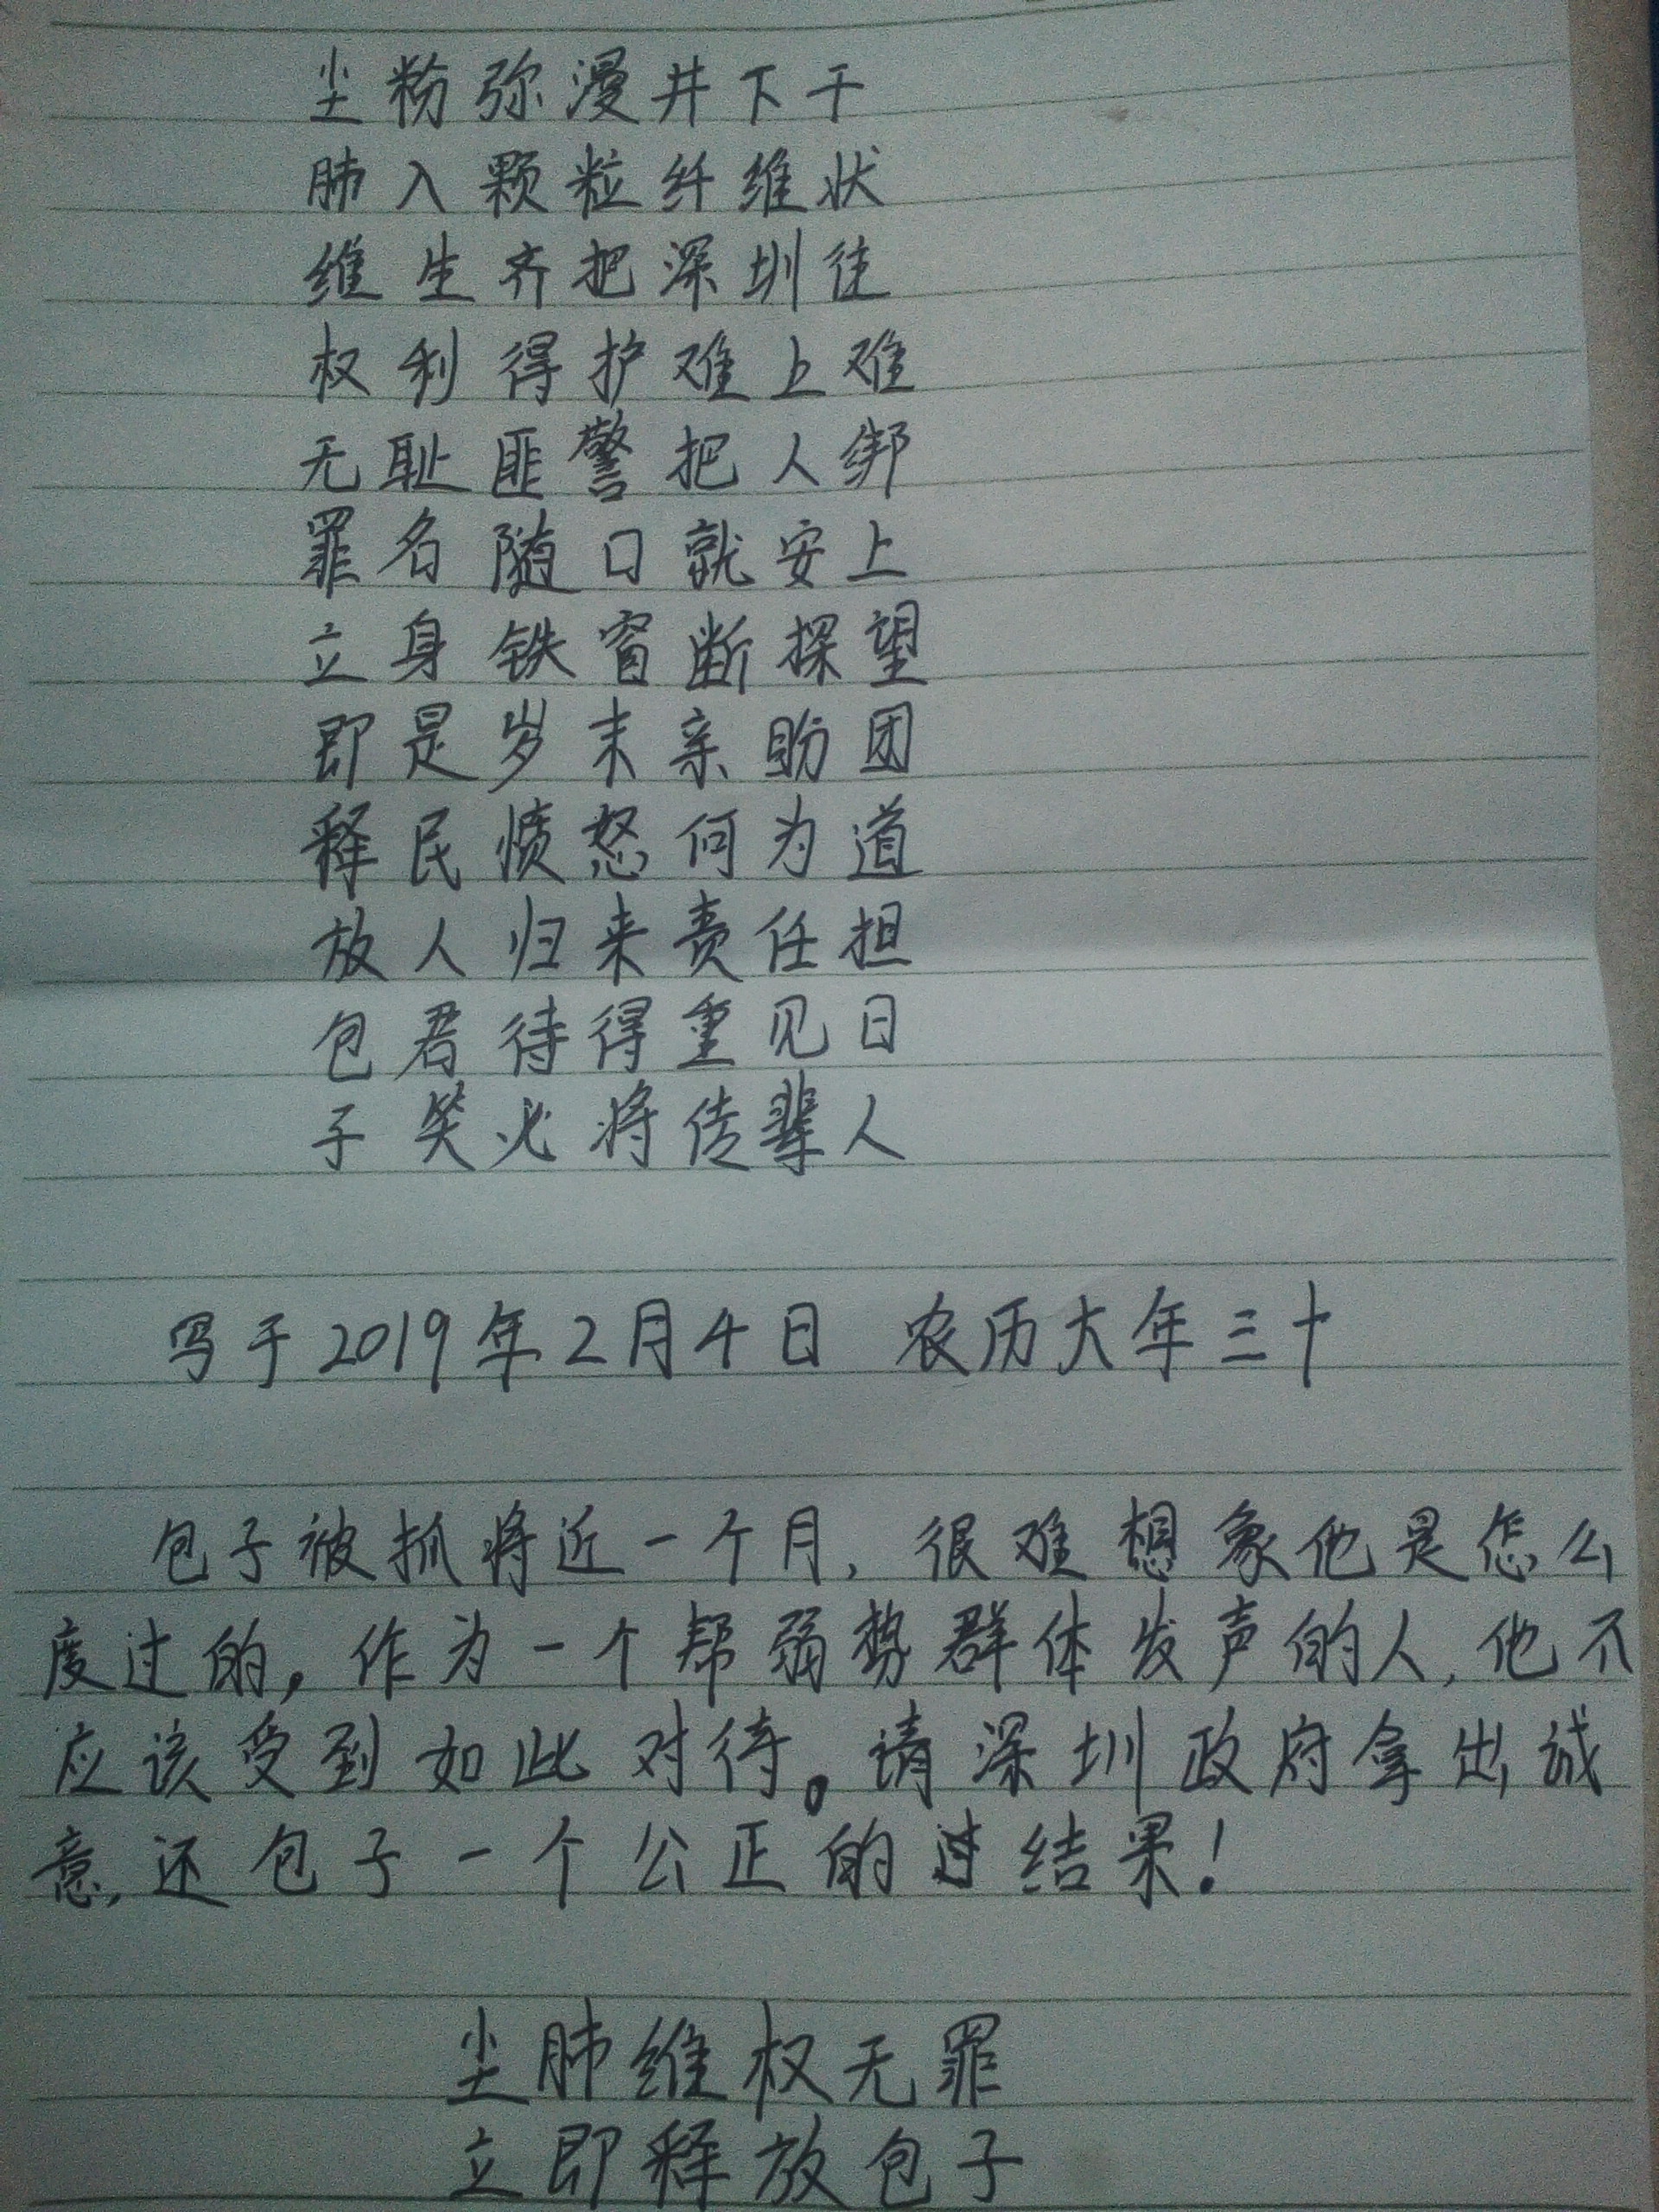 尘粉弥漫井下干
肺入颗粒纤维状
维生齐把深圳往
权利得护难上难
无耻匪警把人绑
罪名随口就安上
立身铁窗断探望
即是岁末亲盼团
释民愤怒何为道
放人归来责任担
包君待得重见日
子笑必将传辈人
写于2019年2月4日 农历大年三十
包子被抓将近一个月,很难想象他是怎么
度过的,作为一个帮弱势群体发声的人,他不
应该受到如此对待。请深圳政府拿出诚
意,还包子一个公正的过结果!
尘肺维权无罪
立即释放包子